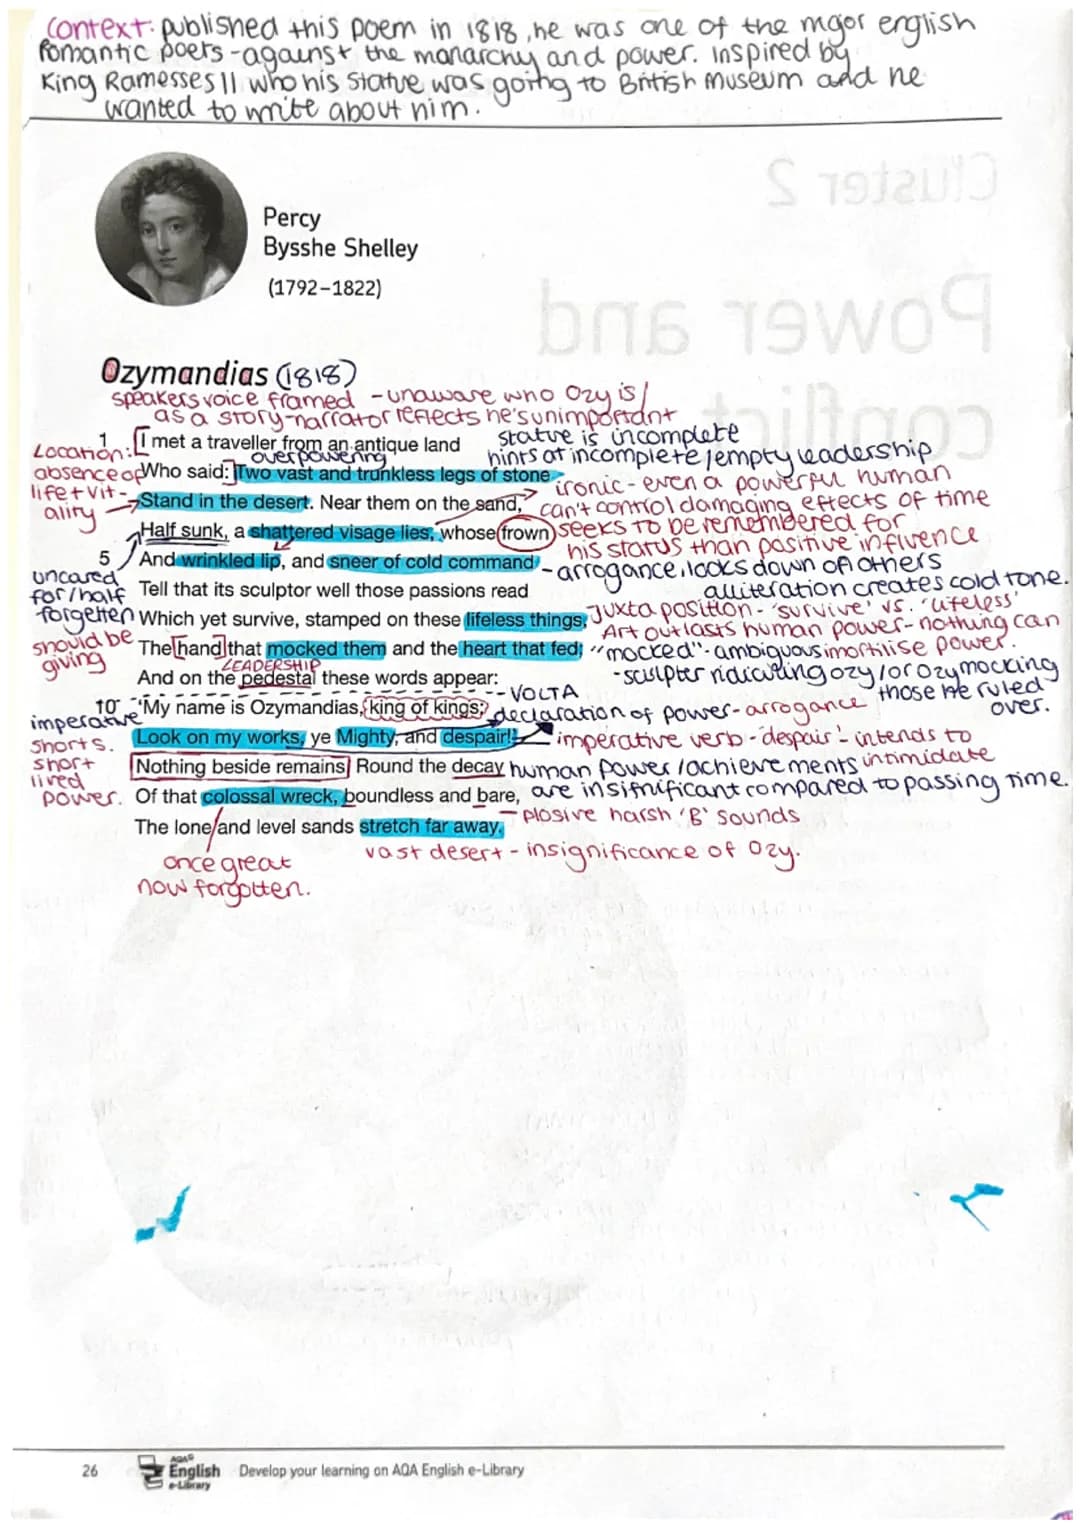 Context: published this poem in 1818, he was one of the major english
romantic poets - against the monarchy and power. Inspired by
King Ramesses II who his statue was going to British museum and he
wanted to write about him.
Cluster 2
Power and
conflict
Percy
Bysshe Shelley
(1792–1822)
Ozymandias (1818)
speakers voice framed - unaware who Ozy is/
as a story-narrator reflects he's unimportant
1 I met a traveller from an antique land
statue is incomplete
Location:
overpowering
hints at incomplete/empty leadership
absence of
Who said: Two vast and trunkless legs of stone
life + vit-
ality
ironic - even a powerful human
Stand in the desert. Near them on the sand,
can't control damaging effects of time
Half sunk, a shattered visage lies, whose frown
seeks to be remembered for
his status than positive influence
5 And wrinkled lip, and sneer of cold command
- arrogance, looks down on others
uncared
for/half
forgotten
Tell that its sculptor well those passions read
alliteration creates cold tone.
Which yet survive, stamped on these lifeless things,
Juxtaposition - 'survive' vs. 'lifeless'
Art outlasts human power - nothing can
imortilise power.
should be
giving
The hand that mocked them and the heart that fed;
"mocked" - ambiguous
- sculpter ridiculing ozy/or Ozy mocking
those he ruled
over.
LEADERSHIP
And on the pedestal these words appear:
VOLTA
10 'My name is Ozymandias, king of kings;
declaration of power - arrogance
imperative
Look on my works, ye Mighty, and despair!'
imperative verb - 'despair' - intends to
intimidate
short s.
short
lived
power.
Nothing beside remains. Round the decay
human power/achievements
are insifnificant compared to passing time.
Of that colossal wreck, boundless and bare,
- plosive harsh 'B' sounds
The lone and level sands stretch far away.
vast desert - insignificance of Ozy.
once great
now forgotten.
26
AQA
English
e-Library
Develop your learning on AQA English e-Library